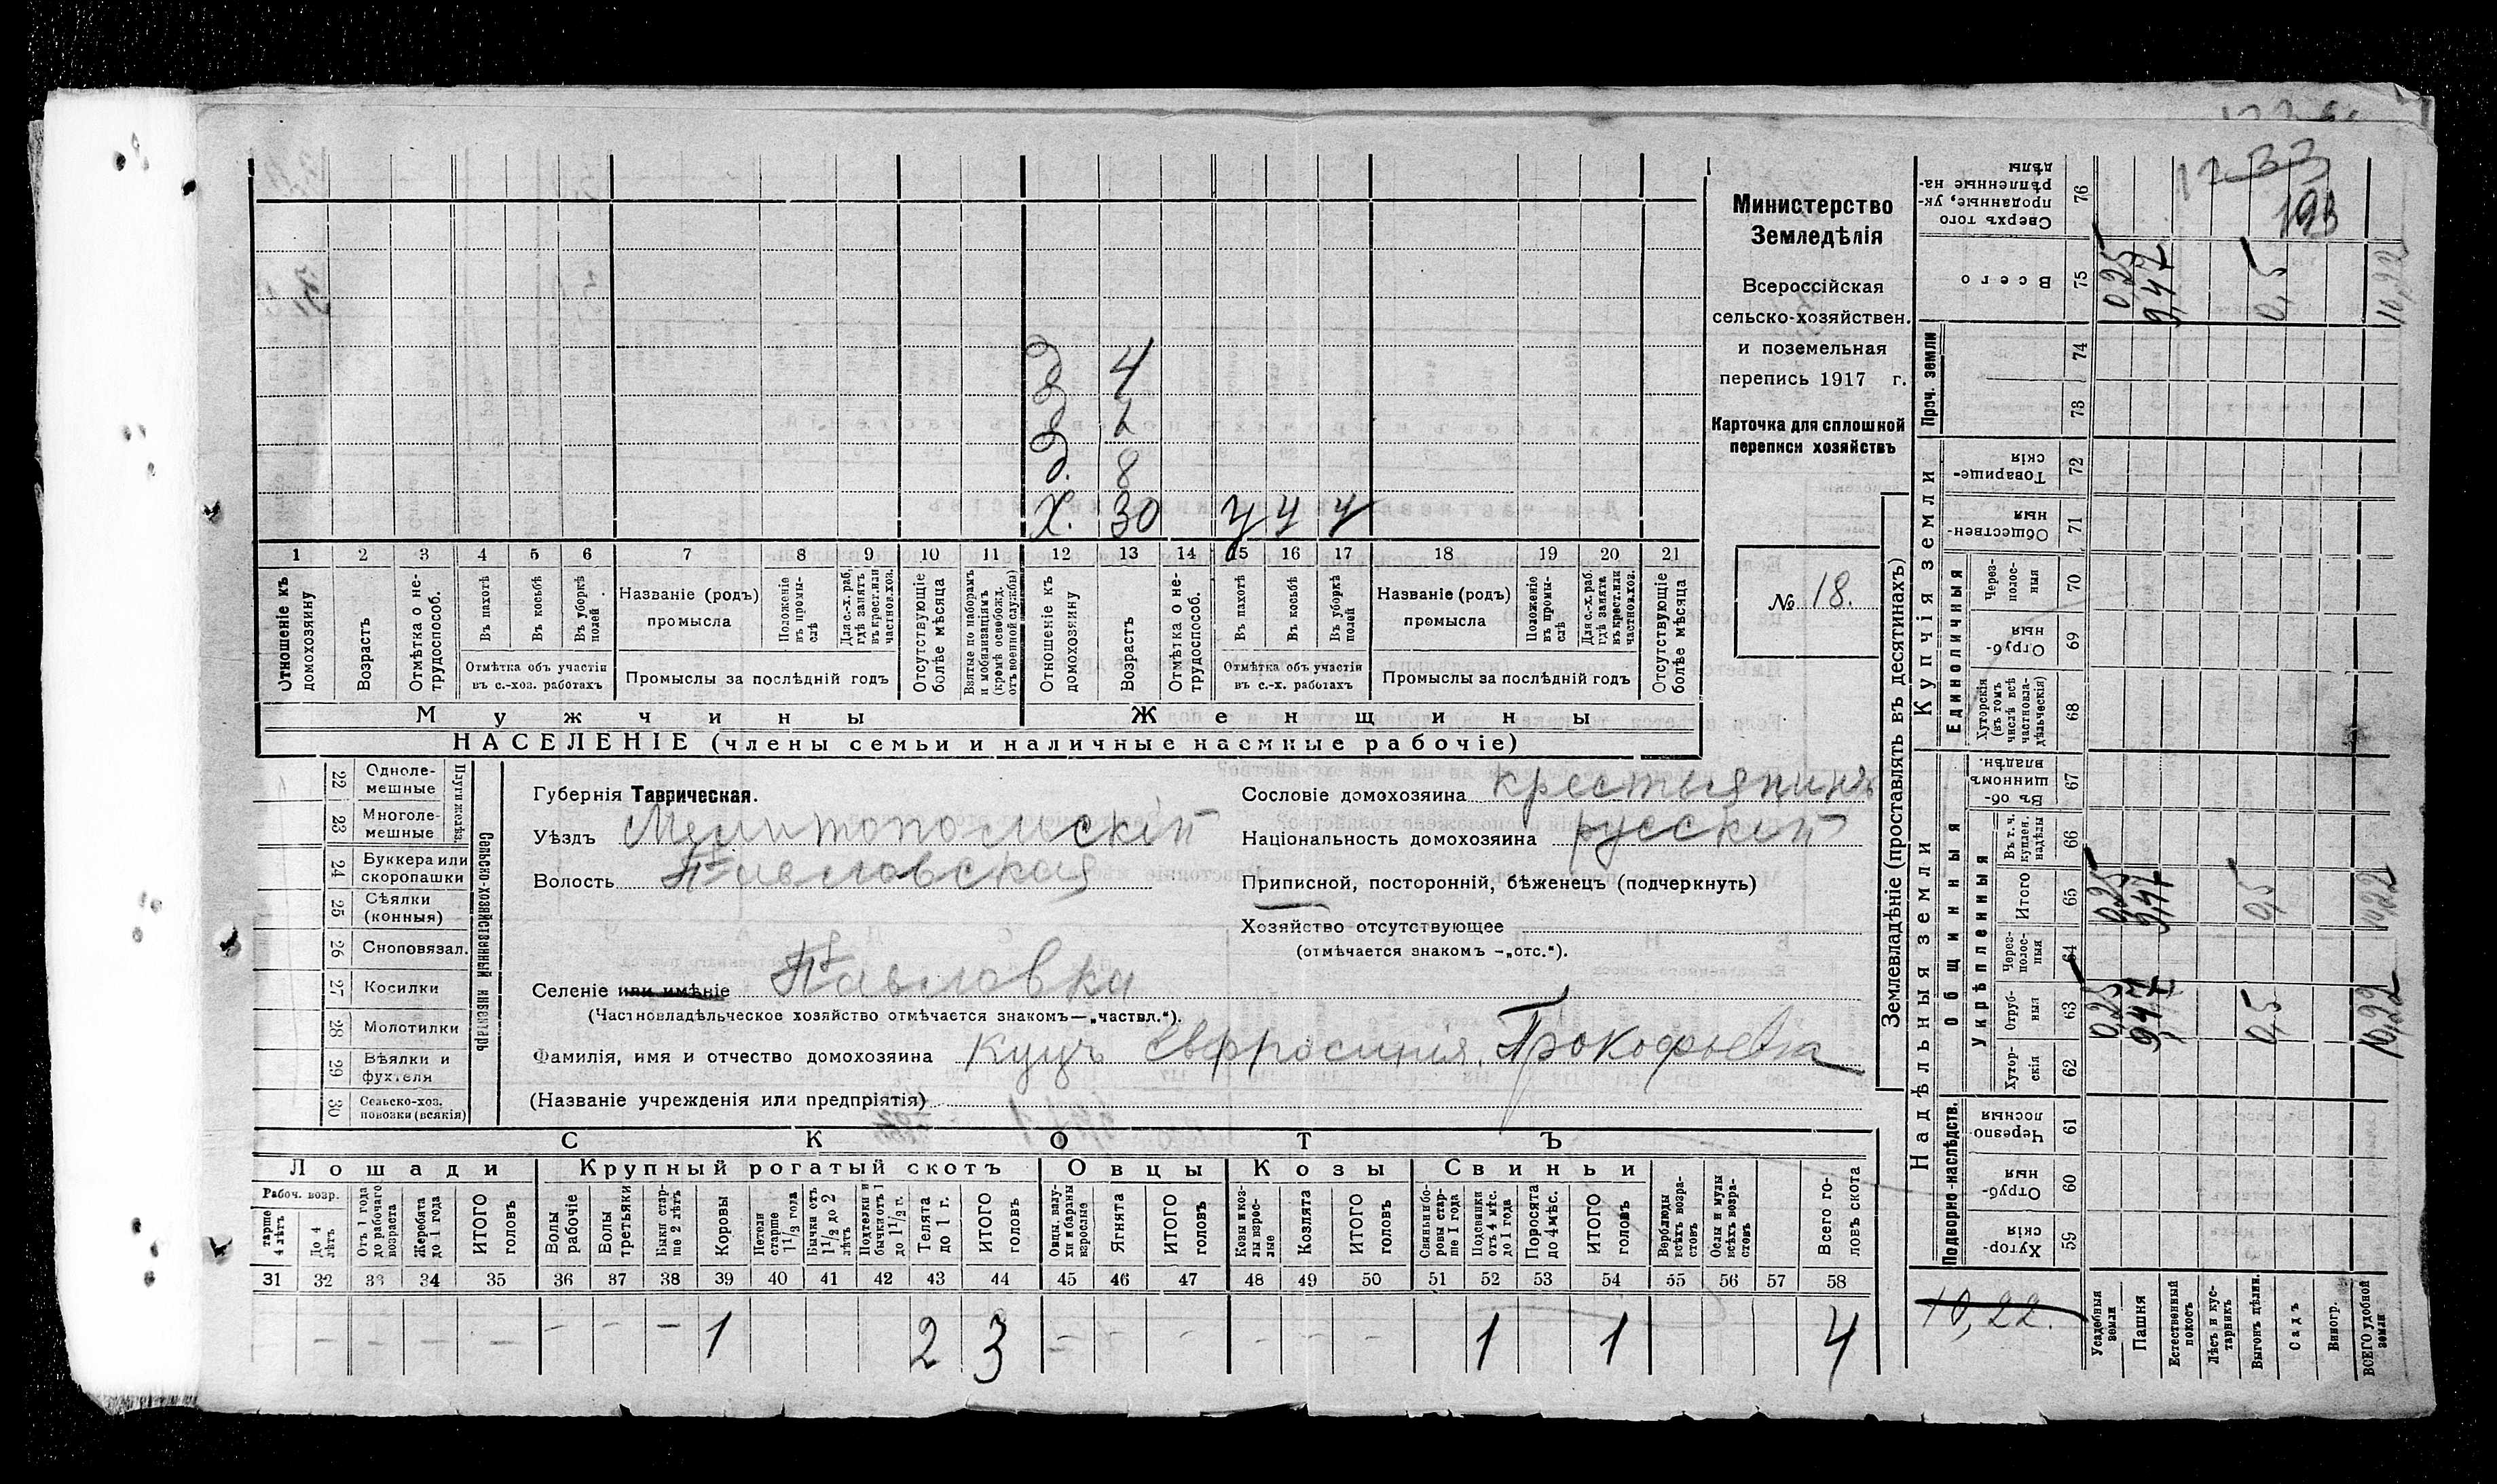 12 33
193
д. 4
д.
д. 8
х. 30 у у у
1 2 3 4 5 6 7 8 9 10 11 12 13 14 15 16 17 18 19 20 21
Отношеніе къ домохозяину
Возрастъ
Отмѣтка о нетрудоспособ.
Въ пахотѣ
Въ косьбѣ
Въ уборкѣ полей
Отмѣтка объ участіи
въ с.-хоз. работахъ
Названіе (родъ)
промысла
Положеніе въ промыслѣ
Для с.-х. раб. гдѣ занятъ въ крест. или частнов. хоз.
Промыслы за послѣдній годъ
Отсутствующіе болѣе мѣсяца
Взятые по наборамъ и мобилизаціямъ (кромѣ освобожд. отъ военной службы)
Отношеніе къ домохозяину
Возрастъ
Отмѣтка о нетрудоспособ.
Въ пахотѣ
Въ косьбѣ
Въ уборкѣ полей
Отмѣтка объ участіи
въ с.-х. работахъ
Названіе (родъ)
промысла
Положеніе въ промыслѣ
Для с.-х. раб. гдѣ занята въ крест. или частнов. хоз.
Промыслы за послѣдній годъ
Отсутствующіе болѣе мѣсяца
Мужчины
Женщины
НАСЕЛЕНІЕ (члены семьи и наличные наемные рабочіе)
Министерство
Земледѣлія
Всероссійская
сельско-хозяйствен.
и поземельная
перепись 1917 г.
Карточка для сплошной
переписи хозяйствъ
№ 18.
Плуги желѣз.
22 Одноле-
мешные
23 Многоле-
мешные
24 Буккера или
скоропашки
25 Сѣялки
(конныя)
26 Сноповязал.
27 Косилки
28 Молотилки
29 Вѣялки и
фухтеля
30 Сельско-хоз.
повозки (всякія)
Сельско-хозяйственный инвентарь
Губернія Таврическая.
Уѣздъ Мелитопольскій
Волость Павловская
Селеніе или имѣніе Павловка
(Частновладѣльческое хозяйство отмѣчается знакомъ—„частвл.“).
Фамилія, имя и отчество домохозяина Куцъ Евфросинія Прокофьевна
(Названіе учрежденія или предпріятія)
Сословіе домохозяина крестьянинъ
Національность домохозяина русскій
Приписной, посторонній, бѣженецъ (подчеркнуть)
Хозяйство отсутствующее
(отмѣчается знакомъ —„отс.“).
СКОТЪ
Лошади
Крупный рогатый скотъ
Овцы
Козы
Свиньи
Рабоч. возр.
тарше 4 лѣтъ
До 4 лѣтъ
Отъ 1 года до рабочаго возраста
Жеребята до 1 года
ИТОГО головъ
Волы рабочіе
Волы третьяки
Быки старше 2 лѣтъ
Коровы
Нетели старше 1 1/2 года
Бычки отъ 1 1/2 до 2 лѣтъ
Подтелки и бычки отъ 1 до 1 1/2 г.
Телята до 1 г.
ИТОГО головъ
Овцы, валухи и бараны взрослые
Ягнята
ИТОГО головъ
Козы и козлы взрослые
Козлята
ИТОГО головъ
Свиньи и боровы старше 1 года
Подсвинки отъ 4 мѣс. до 1 года
Поросята до 4 мѣс.
ИТОГО головъ
Верблюды всѣхъ возрастовъ
Ослы и мулы всѣхъ возрастовъ
Всего головъ скота
31 32 33 34 35 36 37 38 39 40 41 42 43 44 45 46 47 48 49 50 51 52 53 54 55 56 57 58
— — — — — — — 1 2 3 — — — — — — 1 1 4
Землевладѣніе (проставлять въ десятинахъ)
Надѣльныя земли
Купчія земли
Проч. земли
Подворно-наслѣдств.
Общинныя
Укрѣпленныя
Единоличныя
Сверхъ того проданные, укрѣпленные надѣлы 76
Всего 75 0,25 9,47 0,5 10,22
74
73
Товарищескія 72
Общественныя 71
Черезполосныя 70
Отрубныя 69
Хуторскія (въ томъ числѣ всѣ частновладѣльческія) 68
Въ общинномъ владѣн. 67
Въ т. ч. куплен. надѣлы 66
Итого 65 0,25 9,47 0,5 10,22
Черезполосныя 64
Отрубныя 63 0,25 9,47 0,5 10,22
Хуторскія 62
Черезполосныя 61
Отрубныя 60
Хуторскія 59
10,22.
Усадебныя земли
Пашня
Естественный покосъ
Лѣсъ и кустарникъ
Выгонъ цѣлин.
Садъ
Виногр.
ВСЕГО удобной земли